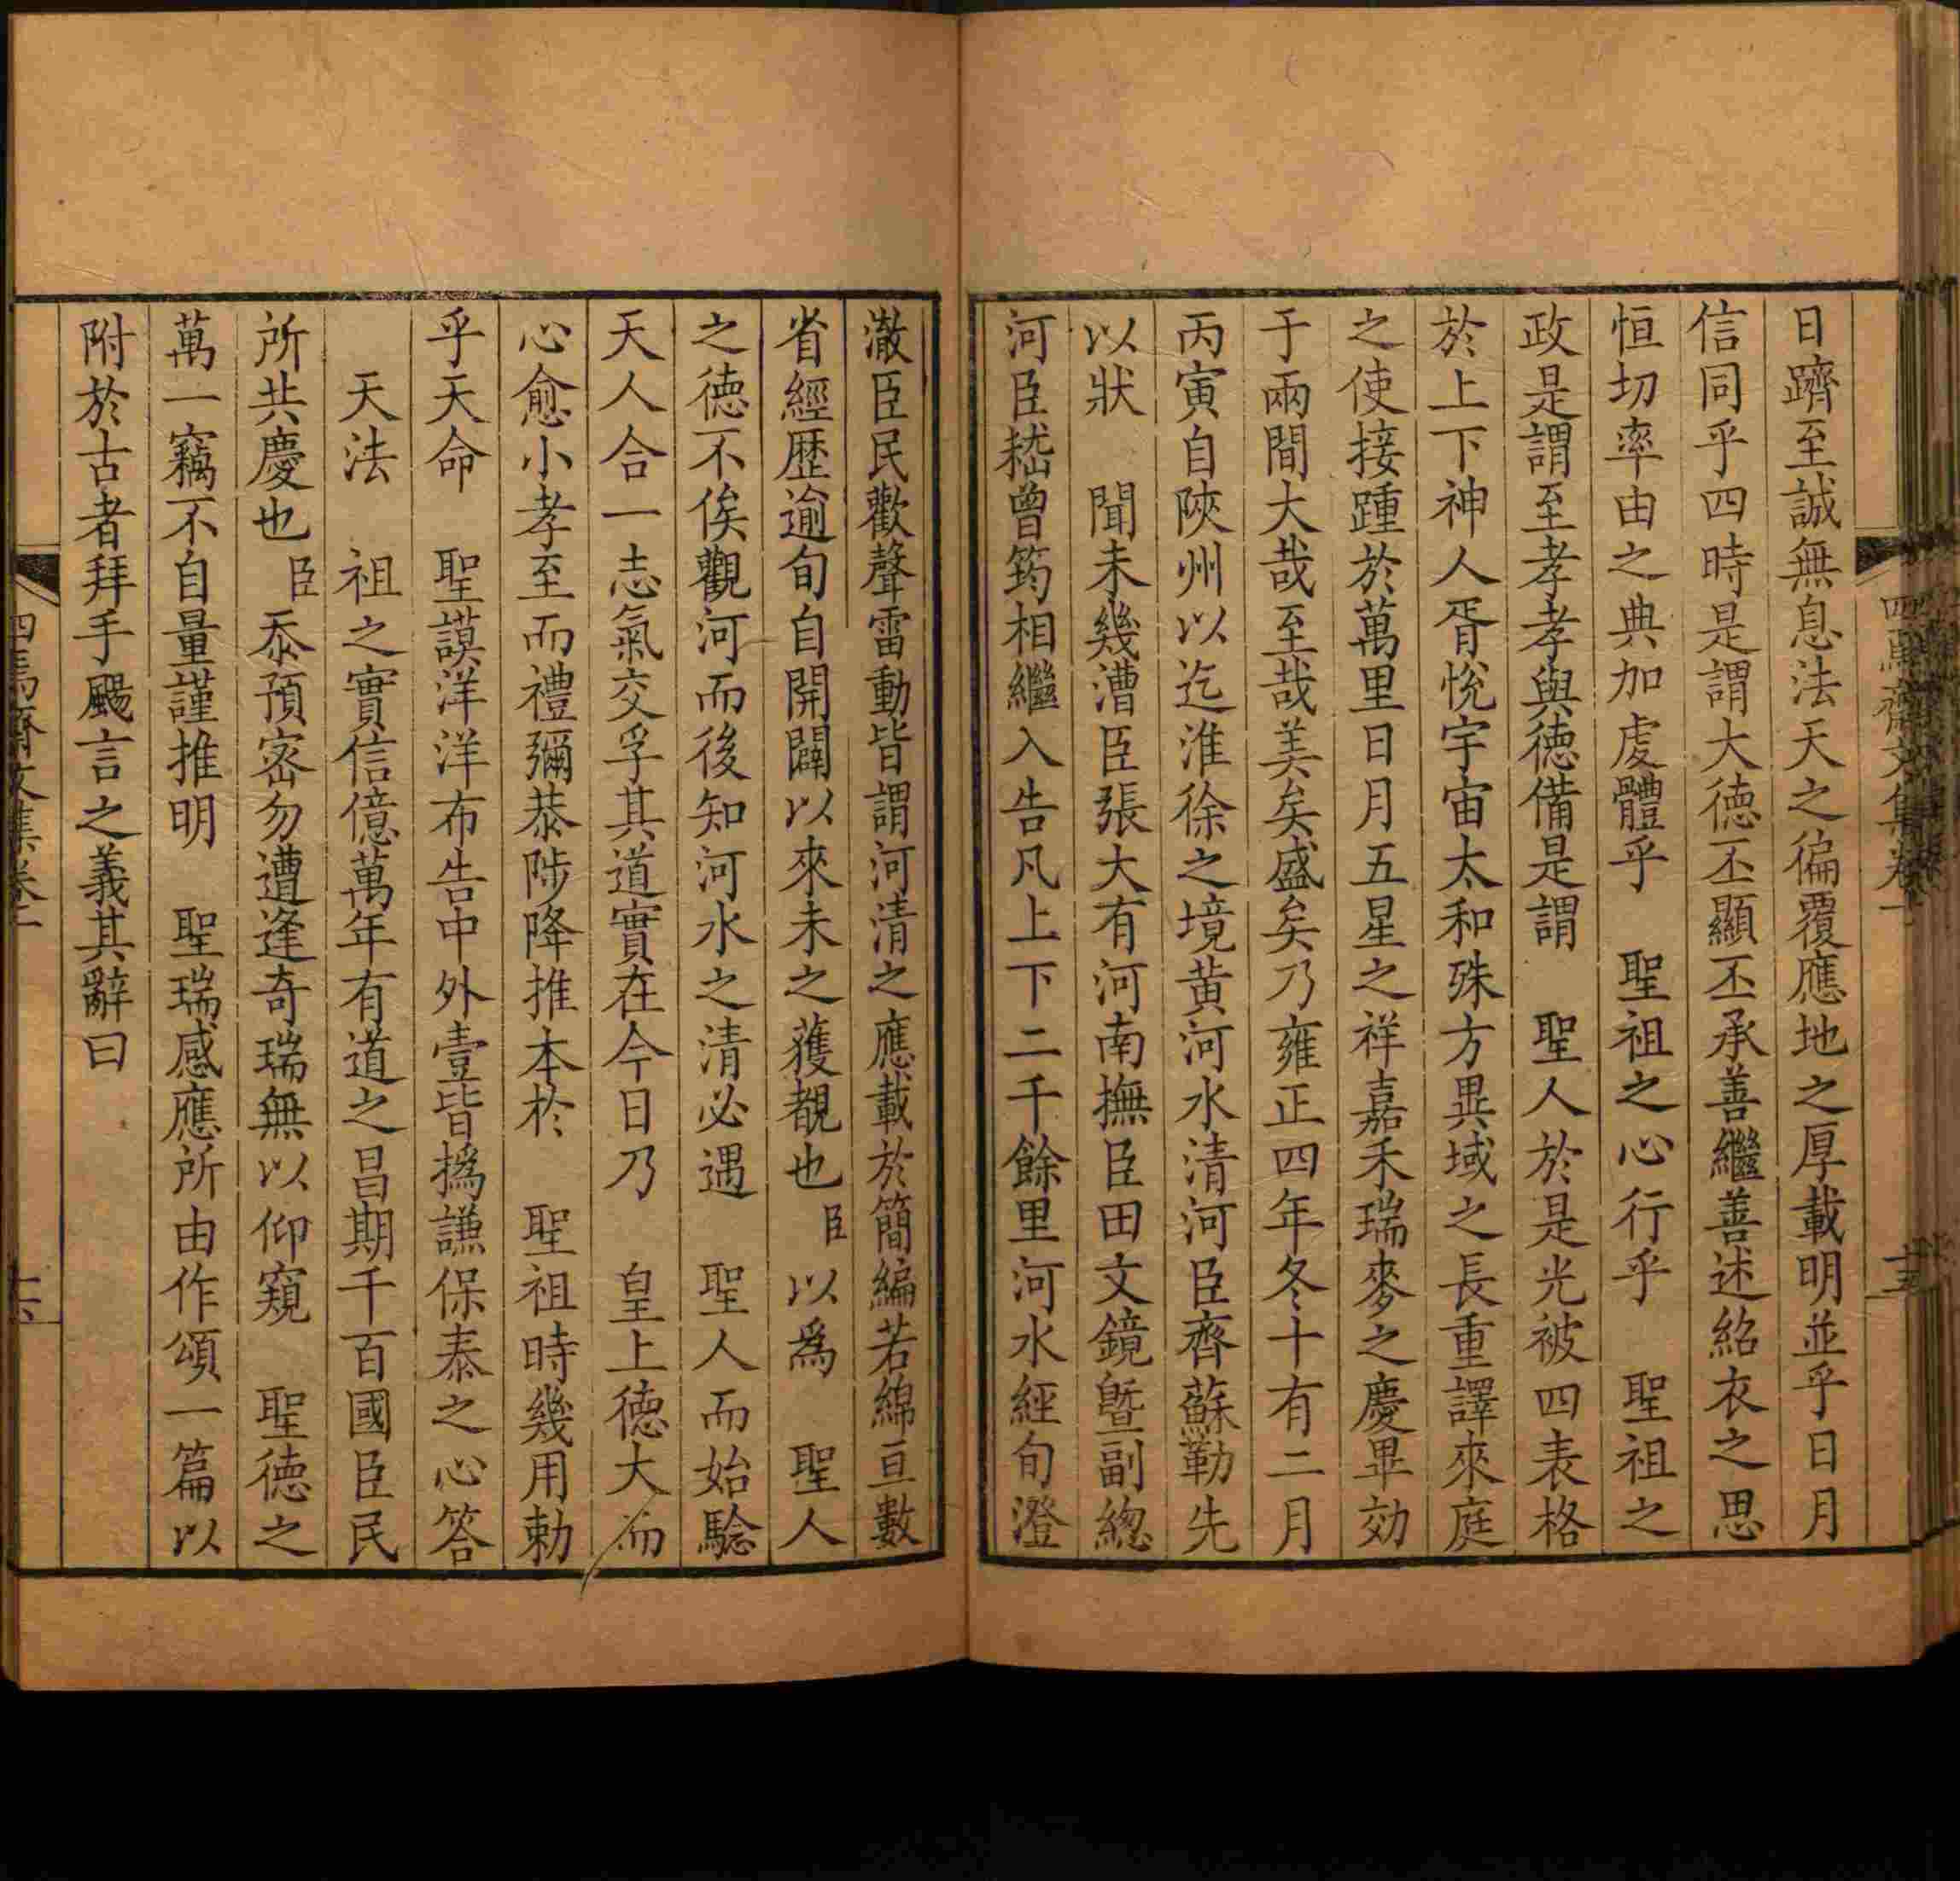 日躋至誠無息法天之徧覆應地之厚載明並乎日月
信同乎四時是謂大德丕顯丕承善繼善述紹衣之思
恒切率由之典加虔體乎　聖祖之心行乎　聖祖之
政是謂至孝孝與德備是謂　聖人於是光被四表格
於上下神人胥悅宇宙太和殊方異域之長重譯來庭
之使接踵於萬里日月五星之祥嘉禾瑞麥之慶畢効
于兩間大哉至哉美矣盛矣乃雍正四年冬十有二月
丙寅自陝州以迄淮徐之境黃河水清河臣齊蘇勒先
以狀　聞未幾漕臣張大有河南撫臣田文鏡曁副總
河臣嵇曾筠相繼入告凡上下二千餘里河水經旬澄
澈臣民歡聲雷動皆謂河清之應載於簡編若綿亘數
省經歷逾旬自開闢以來未之獲覩也臣以為　聖人
之德不俟觀河而後知河水之清必遇　聖人而始驗
天人合一志氣交孚其道實在今日乃　皇上德大而
心愈小孝至而禮彌恭陟降推本於　聖祖時幾用勅
乎天命　聖謨洋洋布告中外壹皆撝謙保泰之心答
天法　祖之實信億萬年有道之昌期千百國臣民
所共慶也臣忝預密勿遭逢奇瑞無以仰窺　聖德之
萬一竊不自量謹推明　聖瑞感應所由作頌一篇以
附於古者拜手颺言之義其辭曰
四焉齋文集卷一
十五
四焉齋文集卷一
十六